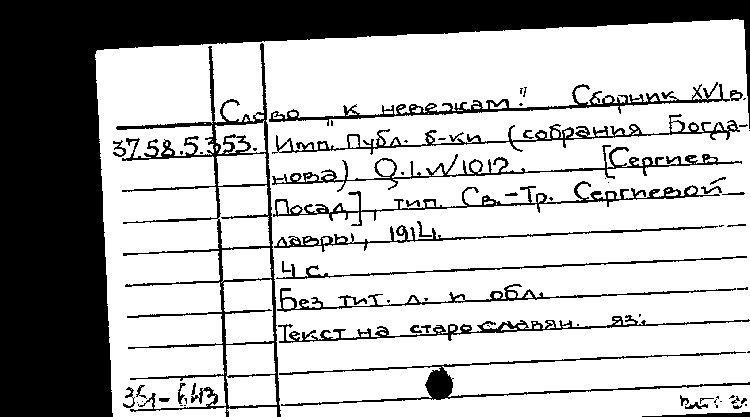 Слово „к невежам“. Сборник XVI в.
37.58.5.353. Имп. Публ. б-ки (собрания Богда-
нова). Q.I.№1012. [Сергиев
Посад], тип. Св.-Тр. Сергиевой
лавры, 1914.
4 с.
Без тит. л. и обл.
Текст на старославян. яз.
351-643